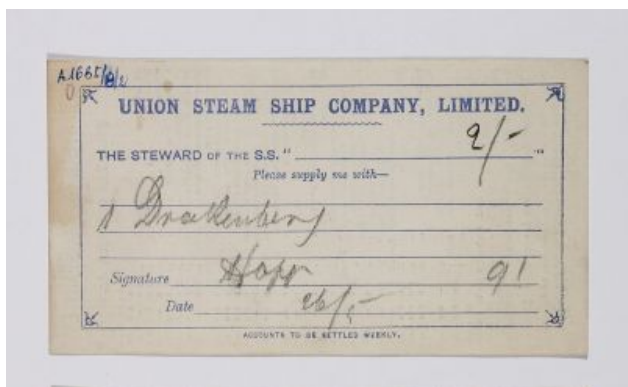 A1665/9/2
0
UNION STEAM SHIP COMPANY, LIMITED.
THE STEWARD OF THE S.S. " 2/- "
Please supply me with—
1 Drakenberg
Signature Hopp 91
Date 26/5
ACCOUNTS TO BE SETTLED WEEKLY.